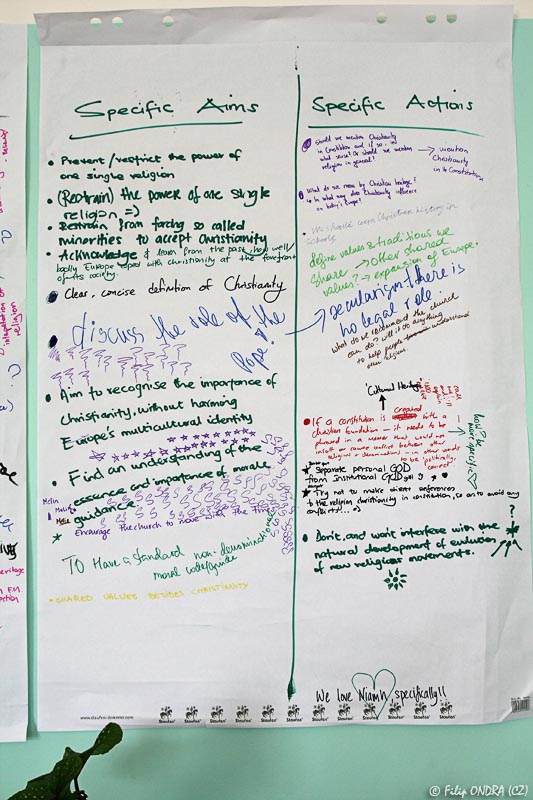 Specific Aims
• Prevent/restrict the power of
one single religion
• (Restrain) the power of one single
religion =)
• Restrain from forcing so called
minorities to accept Christianity
• Acknowledge & learn from the past, how well/
badly Europe coped with christianity at the forefront
of its society
• Clear, concise definition of Christianity
• discuss the role of the
Pope!
• Aim to recognise the importance of
christianity, without harming
Europe's multicultural identity
• Find an understanding of the
essence and importance of morale
guidance.
Encourage the church to move with the times
To Have a standard non-denominational
moral code/guide
• SHARED VALUES BESIDES CHRISTIANITY
Specific Actions
Should we mention Christianity
in Constitution and if so, in
what sense? Or should we mention
religion in general?
→ mention
Christianity
in the Constitution
What do we mean by Christian heritage?
on today's Europe?
define values & traditions we
share → other shared
values? → expansion of Europe.
→ secularism: there is
no legal role.
what do we recommend the church
can do? will it do anything
to help people understand
other religions
'Cultural Heritage'
• If a constitution is created with a
christian foundation – it needs to be
phrased in a manner that would not
insult or cause conflict between other
religions & denominations – in other words
to be 'politically
correct'
how 2 be
more specific?
• Separate personal GOD
from institutional GOD
• Try not to make silent references
to the religion christianity in constitution, so as to avoid any
conflicts!... =)
• Don't, and won't interfere with the
natural development of evolution
of new religious movements.
?
We love Niamh specifically!!
www.staufen-demmler.com
Staufen Staufen Staufen Staufen Staufen Staufen Staufen Staufen Staufen Staufen
© Filip ONDRA (CZ)